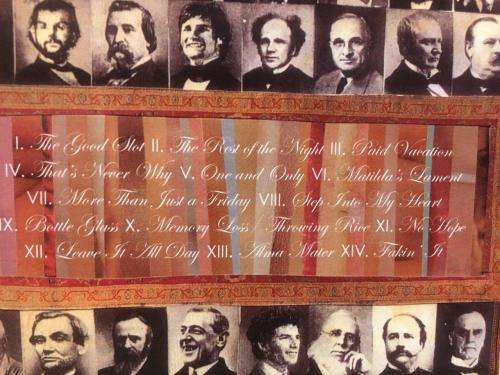 I. The Good Slot II. The Rest of the Night III. Paid Vacation
IV. That's Never Why V. One and Only VI. Matilda's Lament
VII. More Than Just a Friday VIII. Step Into My Heart
IX. Bottle Glass X. Memory Loss / Throwing Rice XI. No Hope
XII. Leave It All Day XIII. Alma Mater XIV. Fakin' It